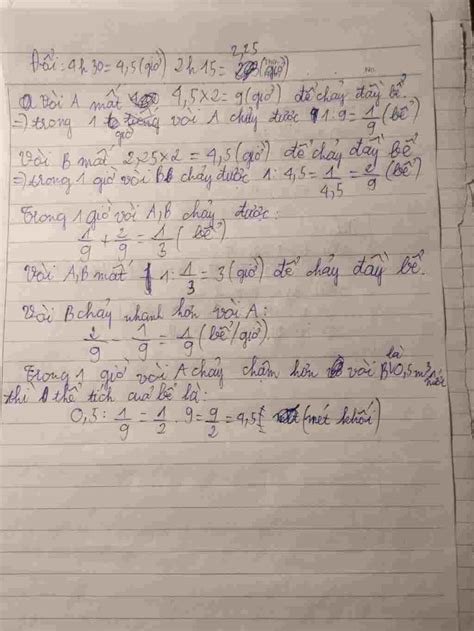 2,25
Đổi: 4h30 = 4,5 (giờ) 2h15 = (giờ)
a, Vòi A mất 4,5 x 2 = 9 (giờ) để chảy đầy bể.
=> trong 1 giờ vòi A chảy được 1 : 9 = 1/9 (bể)
Vòi B mất 2,25 x 2 = 4,5 (giờ) để chảy đầy bể
=> trong 1 giờ vòi B chảy được 1 : 4,5 = 1/4,5 = 2/9 (bể)
Trong 1 giờ vòi A, B chảy được:
1/9 + 2/9 = 1/3 (bể)
Vòi A, B mất 1 : 1/3 = 3 (giờ) để chảy đầy bể.
Vòi B chảy nhanh hơn vòi A:
2/9 - 1/9 = 1/9 (bể/giờ)
Trong 1 giờ vòi A chảy chậm hơn vòi B là 0,5 m³ nước
thì thể tích của bể là:
0,5 : 1/9 = 1/2 . 9 = 9/2 = 4,5 (mét khối)